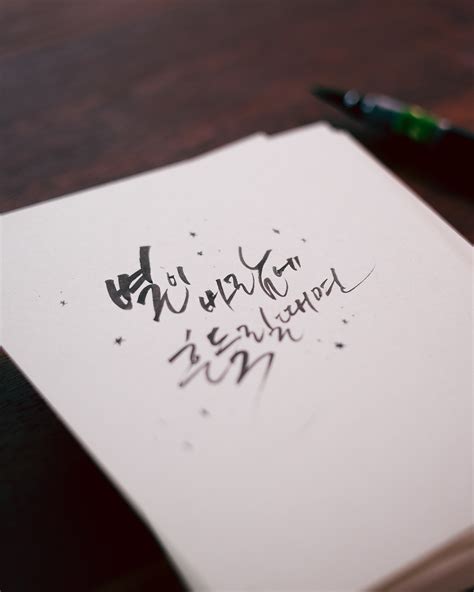 별이 바람에
흔들릴때면